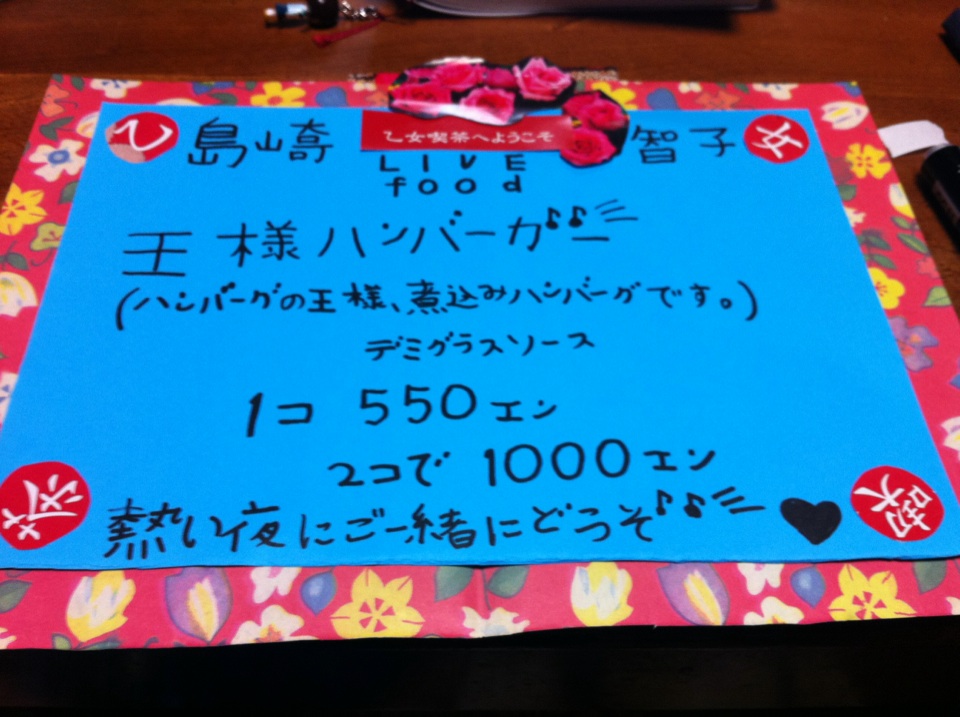 乙女喫茶へようこそ
乙 島崎 智子 女
LIVE
food
王様ハンバーガ♪♪ー
(ハンバーグの王様、煮込みハンバーグです。)
デミグラスソース
1コ 550エン
2コで 1000エン
茶 喫
熱い夜にご一緒にどうぞ♪♪ ♥